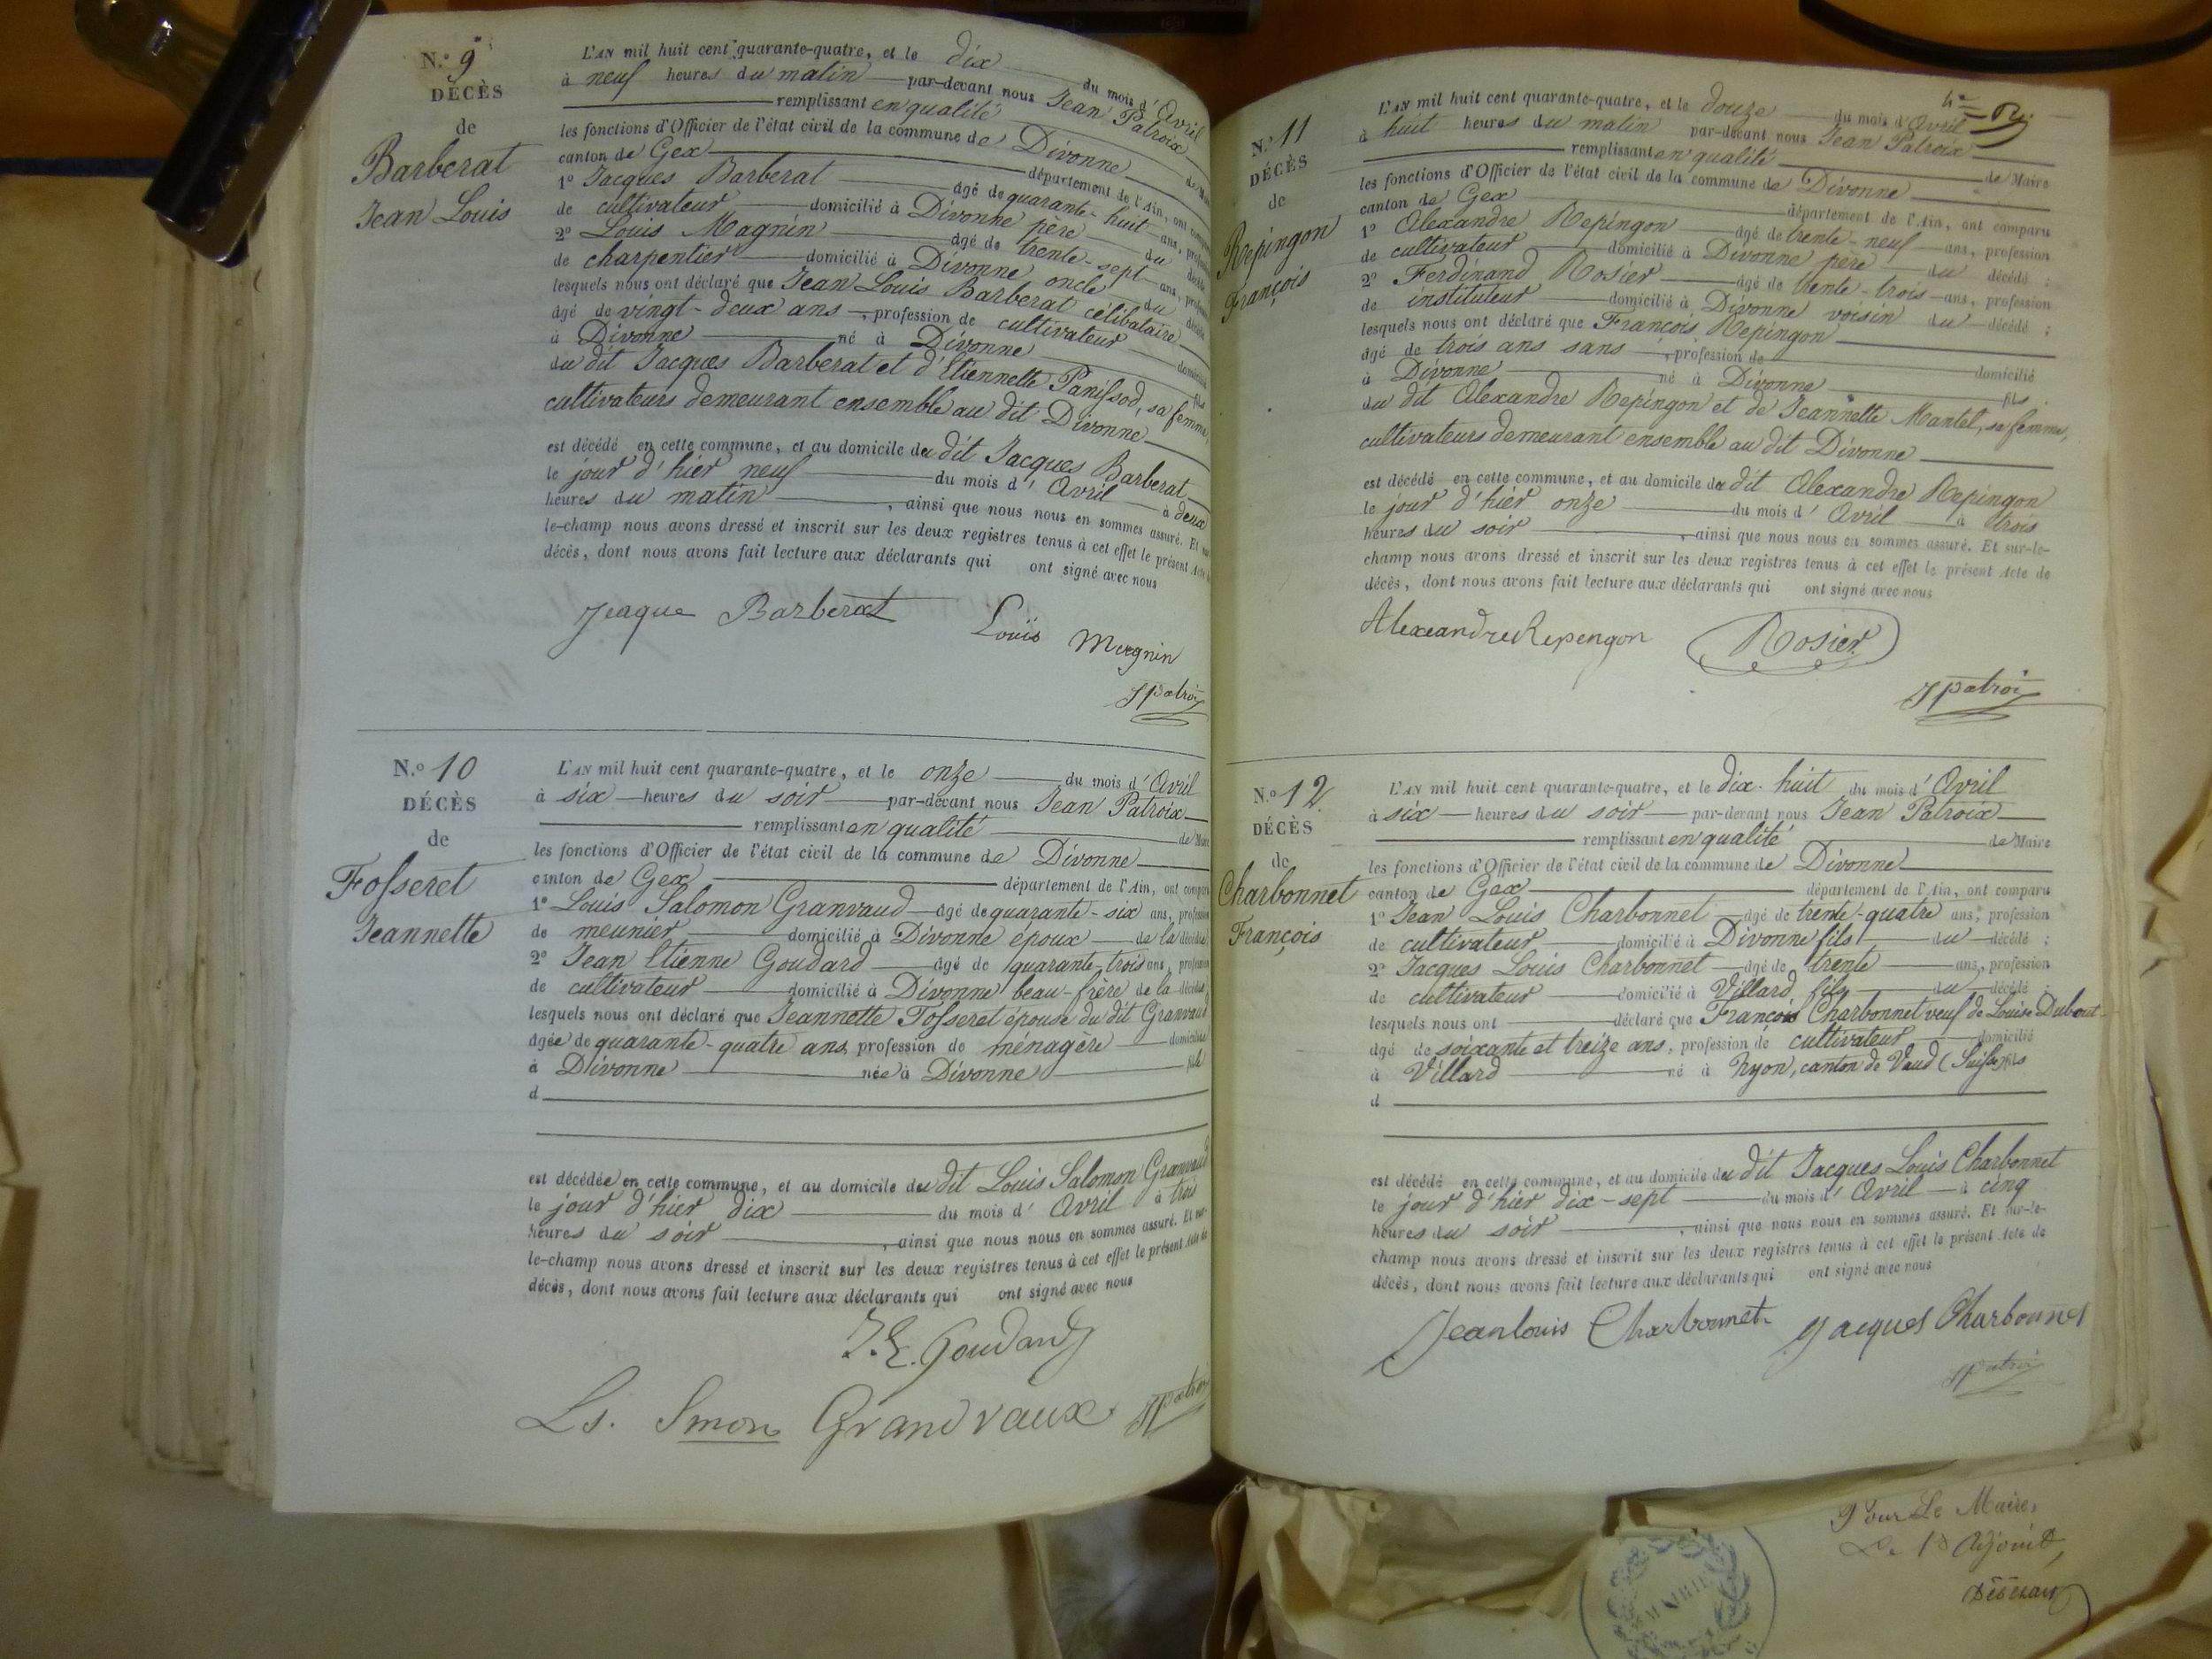 N.º 9
DÉCÈS
de
Barberat
Jean Louis
L'AN mil huit cent quarante-quatre, et le dix du mois d' Avril
à neuf heures du matin par-devant nous Jean Patroix
remplissant en qualité de Maire
les fonctions d'Officier de l'état civil de la commune de Divonne
canton de Gex département de l'Ain, ont
1º Jacques Barberat âgé de quarante-huit ans,
de cultivateur domicilié à Divonne père du
2º Louis Magnin âgé de trente-sept ans,
de charpentier domicilié à Divonne oncle du
lesquels nous ont déclaré que Jean Louis Barberat célibataire
âgé de vingt-deux ans, profession de cultivateur domicilié
à Divonne né à Divonne fils
du dit Jacques Barberat et d'Etiennette Panissod, sa femme,
cultivateurs demeurant ensemble au dit Divonne
est décédé en cette commune, et au domicile du dit Jacques Barberat
le jour d'hier neuf du mois d' Avril à deux
heures du matin, ainsi que nous nous en sommes assuré. Et
le-champ nous avons dressé et inscrit sur les deux registres tenus à cet effet le présent Acte
décès, dont nous avons fait lecture aux déclarants qui ont signé avec nous
Jeaque Barberat Louis Magnin
JPatroix
N.º 10
DÉCÈS
de
Fosseret
Jeannette
L'AN mil huit cent quarante-quatre, et le onze du mois d' Avril
à six heures du soir par-devant nous Jean Patroix
remplissant en qualité de Maire
les fonctions d'Officier de l'état civil de la commune de Divonne
canton de Gex département de l'Ain, ont
1º Louis Salomon Granvaud âgé de quarante-six ans,
de meunier domicilié à Divonne époux de la décédée
2º Jean Etienne Goudard âgé de quarante-trois ans,
de cultivateur domicilié à Divonne beau-frère de la décédée
lesquels nous ont déclaré que Jeannette Fosseret épouse du dit Granvaud
âgée de quarante-quatre ans, profession de ménagère domiciliée
à Divonne née à Divonne fille
d
est décédée en cette commune, et au domicile du dit Louis Salomon Granvaud
le jour d'hier dix du mois d' Avril à trois
heures du soir, ainsi que nous nous en sommes assuré. Et sur-
le-champ nous avons dressé et inscrit sur les deux registres tenus à cet effet le présent Acte de
décès, dont nous avons fait lecture aux déclarants qui ont signé avec nous
J.E. Goudard
Ls. Smon Grandvaux JPatroix
N.º 11
DÉCÈS
de
Repingon
François
L'AN mil huit cent quarante-quatre, et le douze du mois d' Avril
à huit heures du matin par-devant nous Jean Patroix
remplissant en qualité de Maire
les fonctions d'Officier de l'état civil de la commune de Divonne
canton de Gex département de l'Ain, ont comparu
1º Alexandre Repingon âgé de trente-neuf ans, profession
de cultivateur domicilié à Divonne père du décédé ;
2º Ferdinand Rosier âgé de trente-trois ans, profession
de instituteur domicilié à Divonne voisin du décédé ;
lesquels nous ont déclaré que François Repingon
âgé de trois ans sans, profession de domicilié
à Divonne né à Divonne fils
du dit Alexandre Repingon et de Jeannette Mantel, sa femme,
cultivateurs demeurant ensemble au dit Divonne
est décédé en cette commune, et au domicile du dit Alexandre Repingon
le jour d'hier onze du mois d' Avril à trois
heures du soir, ainsi que nous nous en sommes assuré. Et sur-le-
champ nous avons dressé et inscrit sur les deux registres tenus à cet effet le présent Acte de
décès, dont nous avons fait lecture aux déclarants qui ont signé avec nous
Alexeandre Repengon Rosier
JPatroix
N.º 12
DÉCÈS
de
Charbonnet
François
L'AN mil huit cent quarante-quatre, et le dix-huit du mois d' Avril
à six heures du soir par-devant nous Jean Patroix
remplissant en qualité de Maire
les fonctions d'Officier de l'état civil de la commune de Divonne
canton de Gex département de l'Ain, ont comparu
1º Jean Louis Charbonnet âgé de trente-quatre ans, profession
de cultivateur domicilié à Divonne fils du décédé ;
2º Jacques Louis Charbonnet âgé de trente ans, profession
de cultivateur domicilié à Villard fils du décédé ;
lesquels nous ont déclaré que François Charbonnet veuf de Louise Dubout
âgé de soixante et treize ans, profession de cultivateur domicilié
à Villard né à Nyon, canton de Vaud (Suisse) fils
d
est décédé en cette commune, et au domicile du dit Jacques Louis Charbonnet
le jour d'hier dix-sept du mois d' Avril à cinq
heures du soir, ainsi que nous nous en sommes assuré. Et sur-le-
champ nous avons dressé et inscrit sur les deux registres tenus à cet effet le présent Acte de
décès, dont nous avons fait lecture aux déclarants qui ont signé avec nous
Jeanlouis Charbonnet Jacques Charbonnet
JPatroix
Pour Le Maire,
Le 1er Adjoint,
MAIRIE